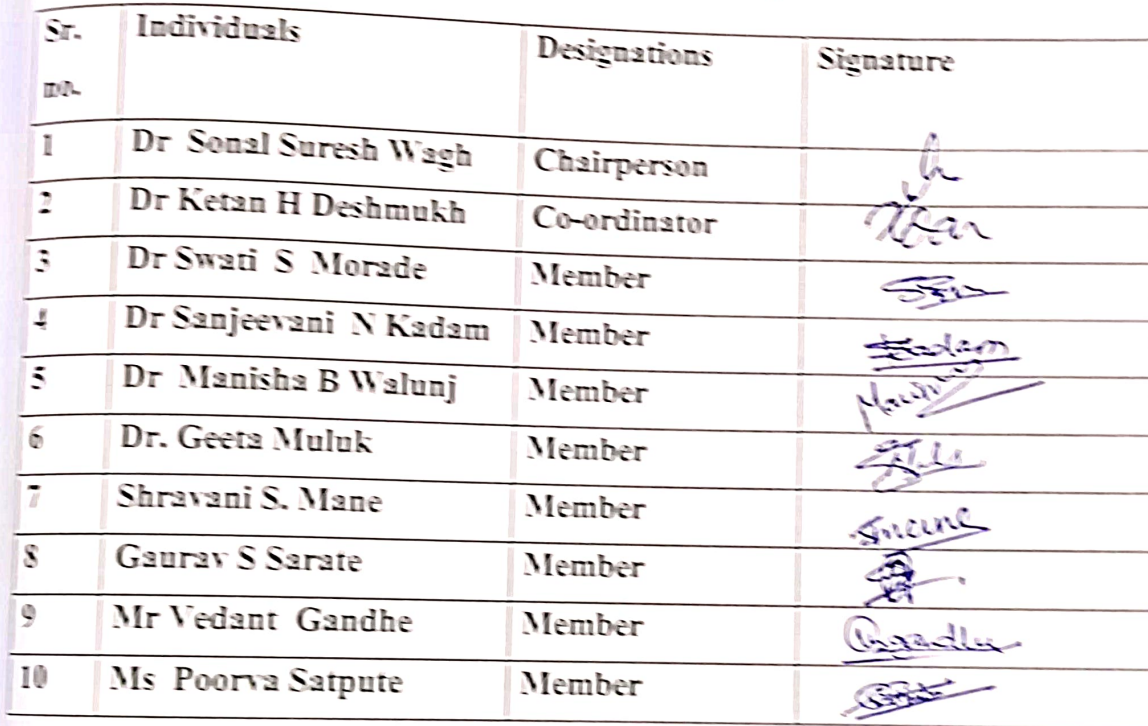 Sr. no. Individuals Designations Signature
1 Dr Sonal Suresh Wagh Chairperson
2 Dr Ketan H Deshmukh Co-ordinator
3 Dr Swati S Morade Member
4 Dr Sanjeevani N Kadam Member Kadam
5 Dr Manisha B Walunj Member
6 Dr. Geeta Muluk Member
7 Shravani S. Mane Member Smane
8 Gaurav S Sarate Member
9 Mr Vedant Gandhe Member
10 Ms Poorva Satpute Member